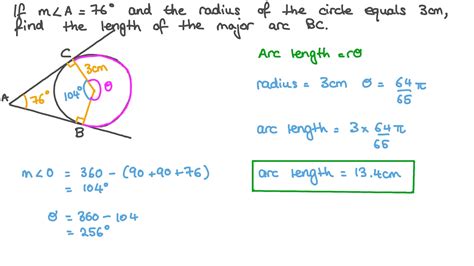 If m∠A = 76° and the radius of the circle equals 3cm,
find the length of the major arc BC.
C
3cm
A
76°
104°
θ
B
Arc length = rθ
radius = 3cm θ = 64/65 π
arc length = 3 × 64/65 π
arc length = 13.4cm
m∠O = 360 - (90+90+76)
= 104°
θ = 360 - 104
= 256°